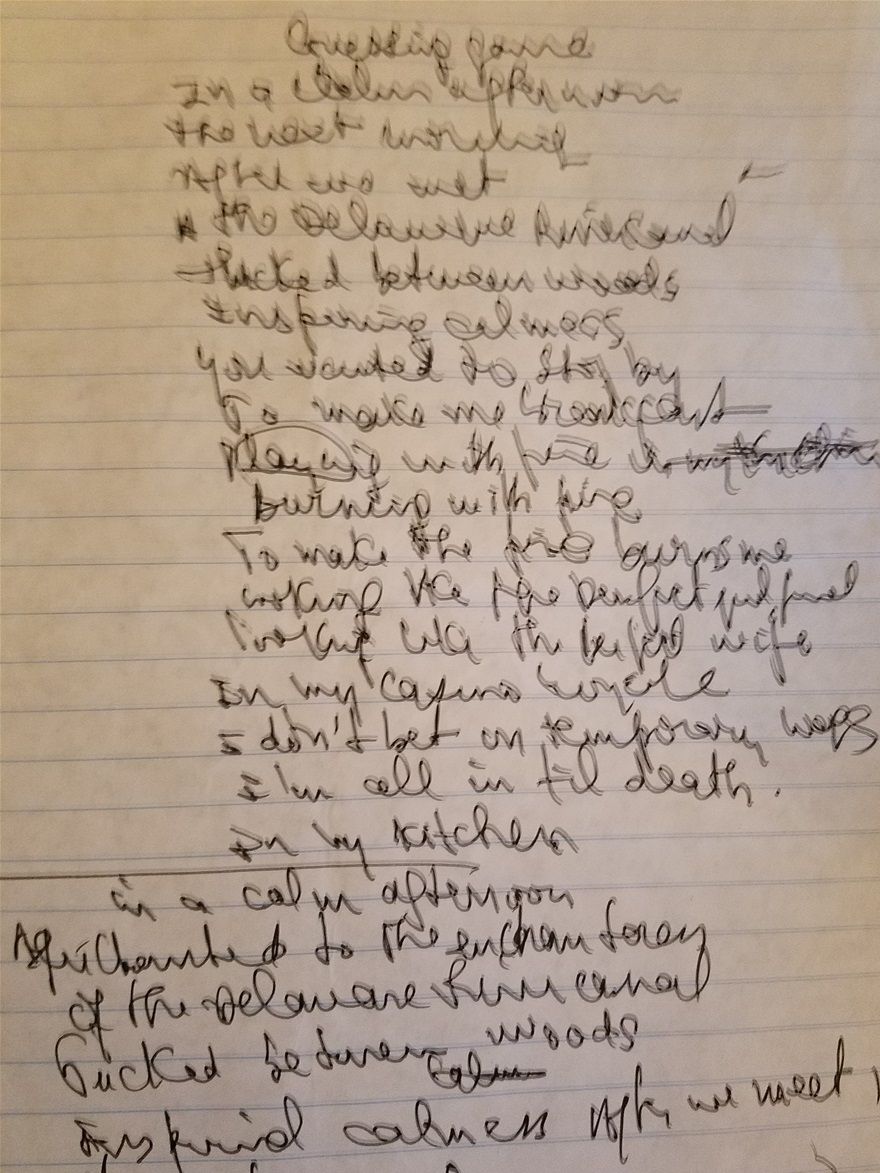 Guessing game
In a calm afternoon
the next morning
After we met
the Delaware River canal
tucked between woods
Inspiring calmness
you wanted to stop by
To make me breakfast
Playing with fire
burning with fire
To make the fire burns me
looking like the perfect
looking like the perfect wife
In my casino
I don't bet on temporary
I'm all in til death.
In my kitchen
in a calm afternoon
to the
of the Delaware River canal
Tucked between woods
Calm
calmness After we meet